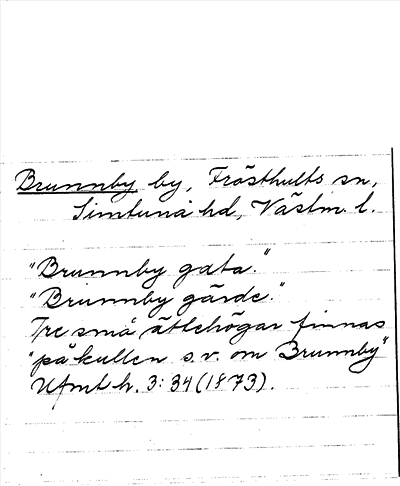 Brunnby by, Frösthults sn,
Simtuna hd, Västm. l.
"Brunnby gata."
"Brunnby gärde."
Tre små ättehögar finnas
"på kullen s.v. om Brunnby"
Ufmt h. 3:34 (1873).